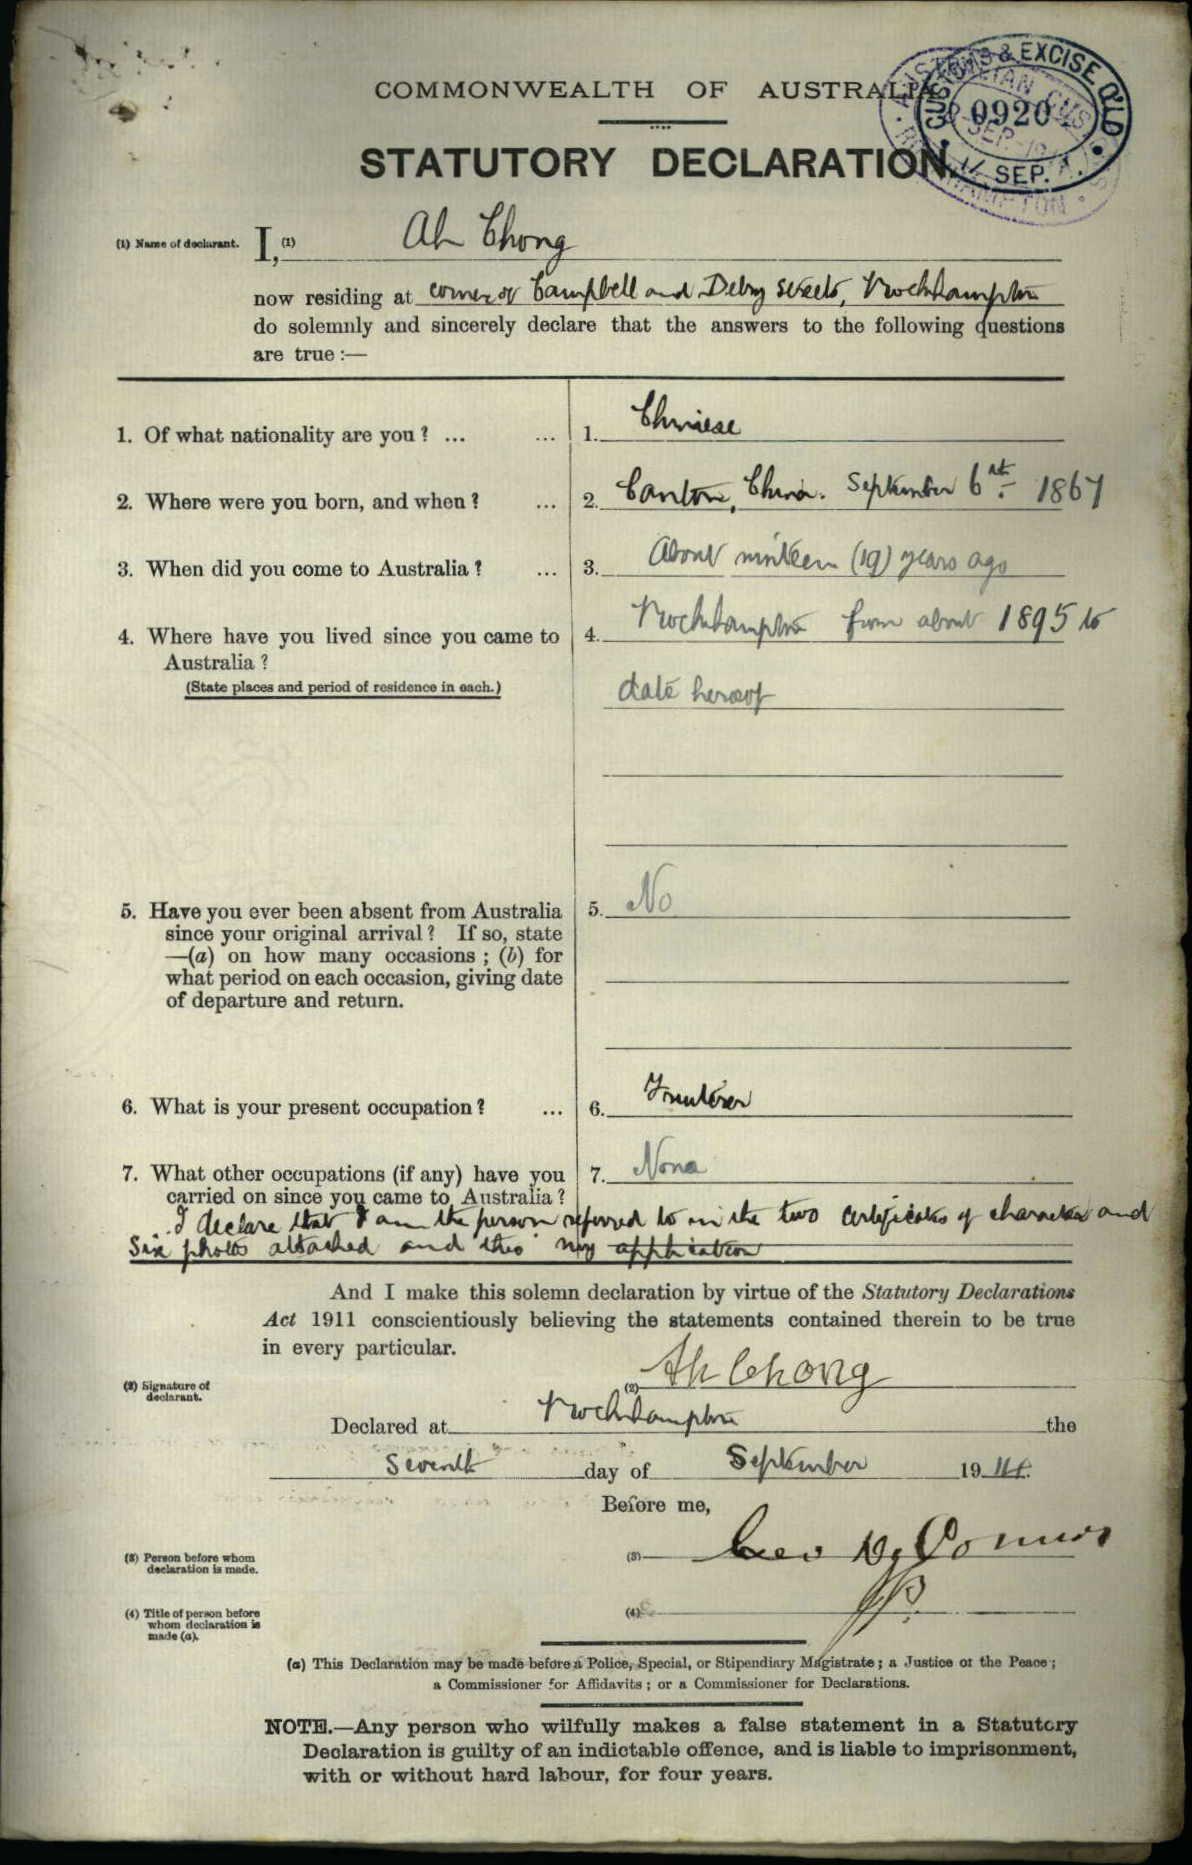 COMMONWEALTH OF AUSTRALIA.
CUSTOMS & EXCISE Q'LD
0920
SEP.
STATUTORY DECLARATION.
(1) Name of declarant. I, (1) Ah Chong
now residing at corner of Campbell and Derby streets, Rockhampton
do solemnly and sincerely declare that the answers to the following questions
are true :—
1. Of what nationality are you ? ... ... 1. Chinese
2. Where were you born, and when ? ... 2. Canton, China. September 6th. 1867
3. When did you come to Australia ? ... 3. About nineteen (19) years ago
4. Where have you lived since you came to 4. Rockhampton from about 1895 to
Australia ?
(State places and period of residence in each.) date hereof
5. Have you ever been absent from Australia 5. No
since your original arrival ? If so, state
—(a) on how many occasions ; (b) for
what period on each occasion, giving date
of departure and return.
6. What is your present occupation ? ... 6. Fruiterer
7. What other occupations (if any) have you 7. None
carried on since you came to Australia ?
I declare that I am the person referred to in the two certificates of character and
six photos attached and this my application
And I make this solemn declaration by virtue of the Statutory Declarations
Act 1911 conscientiously believing the statements contained therein to be true
in every particular.
(2) Signature of declarant. (2) Ah Chong
Declared at Rockhampton the
Seventh day of September 19 14.
Before me,
(3) Person before whom declaration is made. (3) Geo
(4) Title of person before whom declaration is made (a). (4) JP.
(a) This Declaration may be made before a Police, Special, or Stipendiary Magistrate ; a Justice of the Peace ;
a Commissioner for Affidavits ; or a Commissioner for Declarations.
NOTE.—Any person who wilfully makes a false statement in a Statutory
Declaration is guilty of an indictable offence, and is liable to imprisonment,
with or without hard labour, for four years.